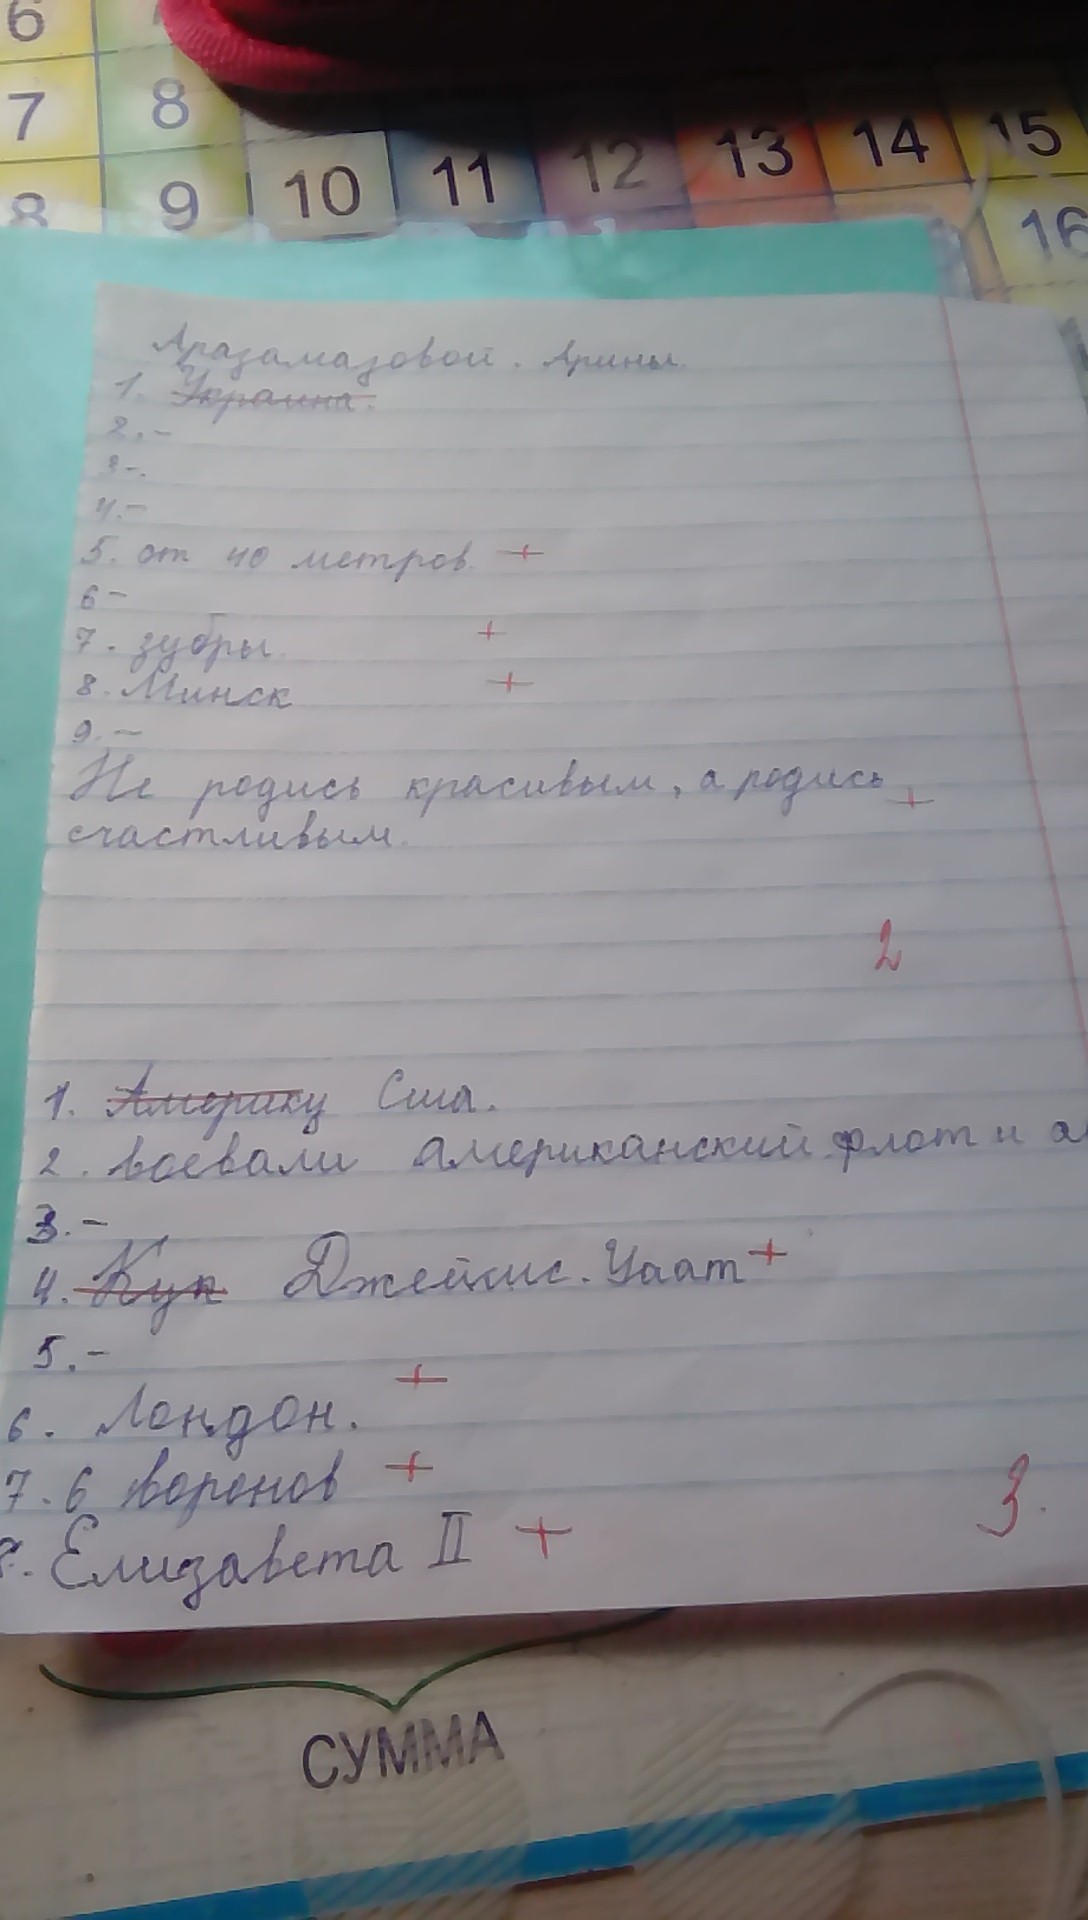 6
7 8
8 9 10 11 12 13 14 15
16
Аразамазовой. Арины.
1. Украина.
2. -
3 -.
4. -
5. от 40 метров. +
6 -
7. зубры. +
8. Минск +
9. -
Не родись красивым, а родись +
счастливым.
2
1. Америку Сша.
2. воевали американский флот и
3. -
4. Кук Джеймс. Уаат +
5. -
6. Лондон. +
7. 6 воронов +
3.
8. Елизавета II +
СУММА